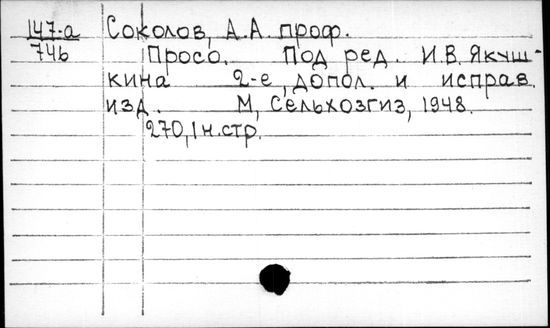 147-а Соколов, А.А. проф.
746 Просо. Под ред. И.В. Якуш-
кина 2-е, допол. и исправ.
изд. М, Сельхозгиз, 1948.
270, 1 н. стр.